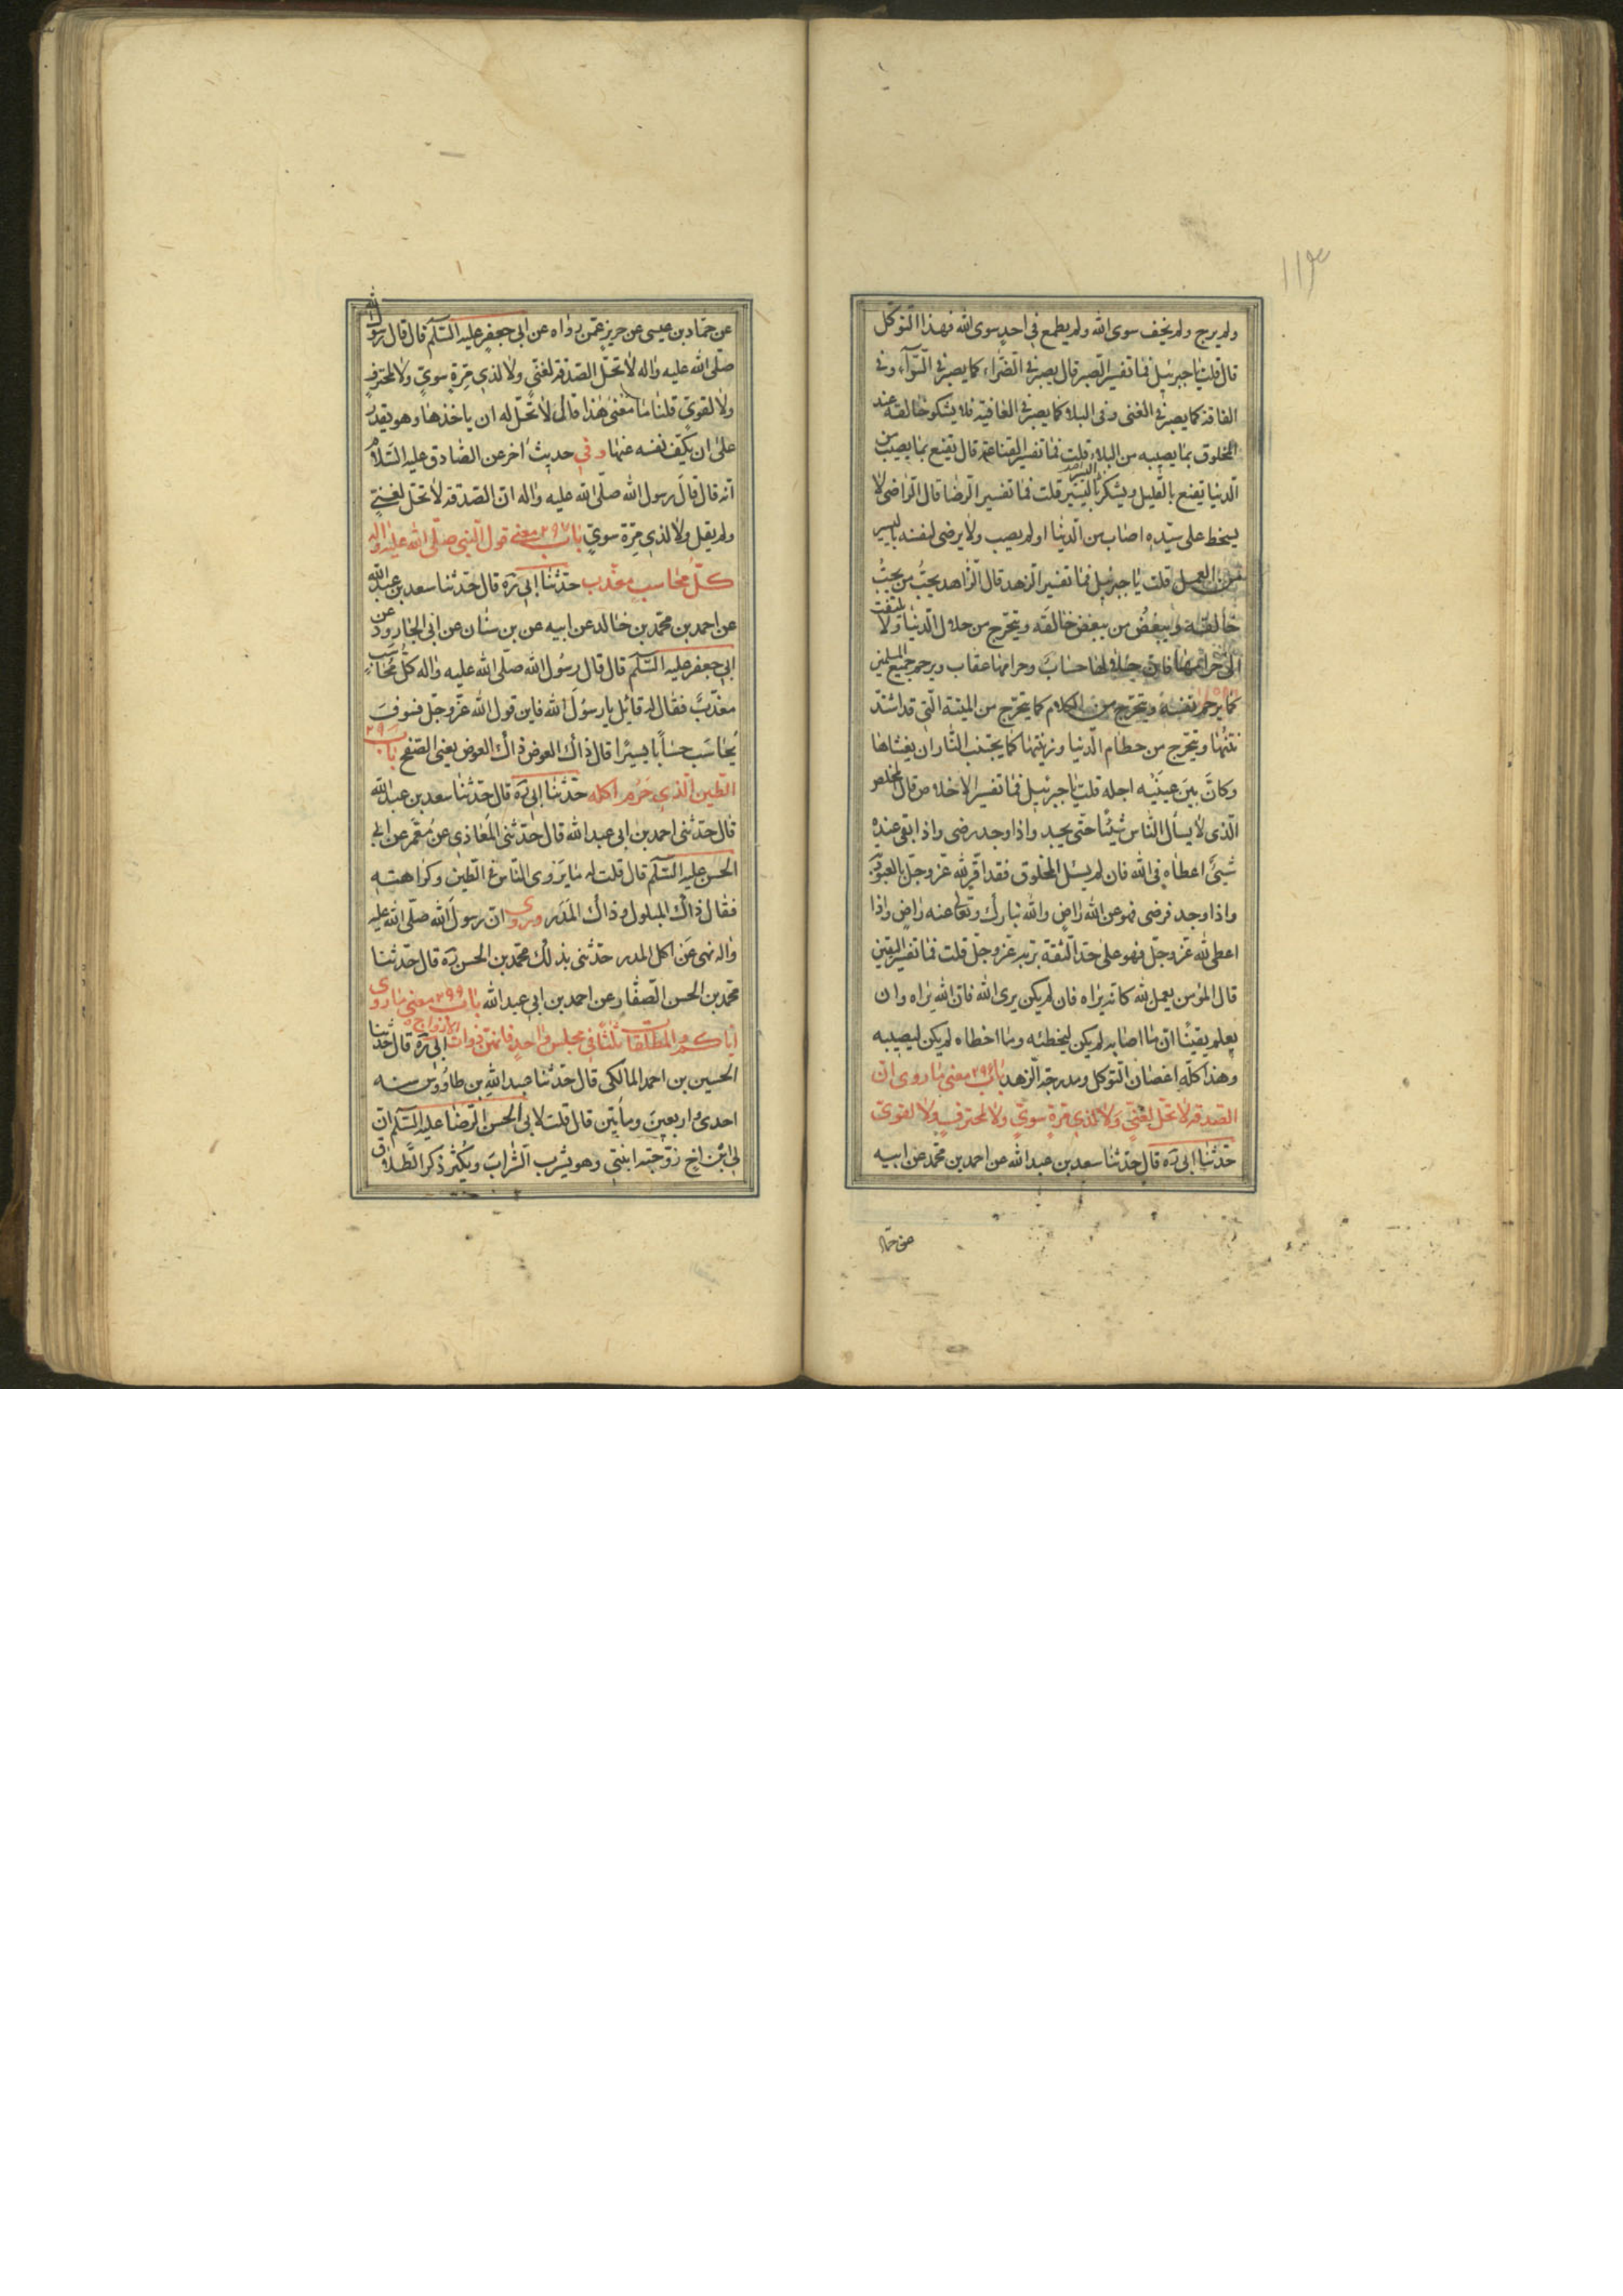 ١١٣
ولم يرج ولم يخف سوى الله ولم يطمع في احد سوى الله فهذا التوكل
قال قلت يا جبرئيل فما تفسير الصبر قال يصبر في الضراء كما يصبر في السراء وفى
الفاقة كما يصبر في الغنى وفى البلاء كما يصبر في العافية فلا يشكو خالقه عند
المخلوق بما يصيبه من البلاء قلت فما تفسير القناعة قال يقنع بما يصيب من
الدنيا يقنع بالقليل ويشكر باليسير قلت فما تفسير الرضا قال الراضى لا
يسخط على سيده اصاب من الدنيا او لم يصب ولا يرضى لنفسه باليسير
من العمل قلت يا جبرئيل فما تفسير الزهد قال الزاهد يحب من يحب
خالقه ويبغض من يبغض خالقه ويتحرج من حلال الدنيا ولا يلتفت
الى حرامها فان حلالها حساب وحرامها عقاب ويرحم جميع المسلمين
كما يرحم نفسه ويتحرج من الكلام كما يتحرج من الميتة التي قد اشتد
نتنها ويتحرج من حطام الدنيا وزينتها كما يجتنب النار ان يغشاها
وكان بين عينيه اجله قلت يا جبرئيل فما تفسير الاخلاص قال المخلص
الذى لا يسأل الناس شيئا حتى يجد واذا وجد رضى واذا بقى عنده
شيئ اعطاه في الله فان لم يسئل المخلوق فقد اقر لله عز وجل بالعبودية
واذا وجد فرضى فهو عن الله راض والله تبارك وتعالى عنه راض واذا
اعطى لله عز وجل فهو على حد الثقة بربه عز وجل قلت فما تفسير اليقين
قال المؤمن يعمل لله كانه يراه فان لم يكن يرى الله فان الله يراه وان
يعلم يقينا ان ما اصابه لم يكن ليخطئه وما اخطاه لم يكن ليصيبه
وهذا كله اغصان التوكل ومدرجة الزهد باب ٢٩٦ معنى ما روى ان
الصدقه لا تحل لغنى ولا لذى مرة سوى ولا لمحترف ولا لقوى
حدثنا ابى ره قال حدثنا سعد بن عبد الله عن احمد بن محمد عن ابيه
عن حماد
عن حماد بن عيسى عن حريز عمن رواه عن ابى جعفر عليه السلم قال قال رسول الله
صلى الله عليه واله لا تحل الصدقه لغنى ولا لذى مرة سوى ولا لمحترف
ولا لقوى قلنا ما معنى هذا قال لا تحل له ان ياخذها وهو يقدر
على ان يكف نفسه عنها وفي حديث اخر عن الصادق عليه السلام
انه قال قال رسول الله صلى الله عليه واله ان الصدقه لا تحل لغنى
ولم يقل ولا لذى مرة سوى باب ٢٩٧ معنى قول النبي صلى الله عليه واله
كل محاسب معذب حدثنا ابى ره قال حدثنا سعد بن عبد الله
عن احمد بن محمد بن خالد عن ابيه عن بن سنان عن ابى الجارود عن
ابى جعفر عليه السلم قال قال رسول الله صلى الله عليه واله كل محاسب
معذب فقال له قائل يا رسول الله فاين قول الله عز وجل فسوف
يحاسب حسابا يسيرا قال ذاك العرض ذاك العرض يعنى التصفح باب ٢٩
الطين الذى حرم اكله حدثنا ابى ره قال حدثنا سعد بن عبد الله
قال حدثنى احمد بن ابى عبد الله قال حدثنى المعاذى عن معمر عن ابى
الحسن عليه السلم قال قلت له ما يروى الناس في الطين وكراهته
فقال ذاك المبلول وذاك المدر وروى ان رسول الله صلى الله عليه
واله نهى عن اكل المدر حدثنى بذلك محمد بن الحسن ره قال حدثنا
محمد بن الحسن الصفار عن احمد بن ابى عبد الله باب ٢٩٩ معنى ما روى
اياكم والمطلقات ثلثا في مجلس واحد فانهن ذوات الازواج ابى ره قال حدثنا
الحسين بن احمد المالكى قال حدثنا عبد الله بن طاووس سنه
احدى واربعين ومأتين قال قلت لابى الحسن الرضا عليه السلم ان
لى ابن اخ زوجته ابنتى وهو يشرب الشراب ويكثر ذكر الطلاق